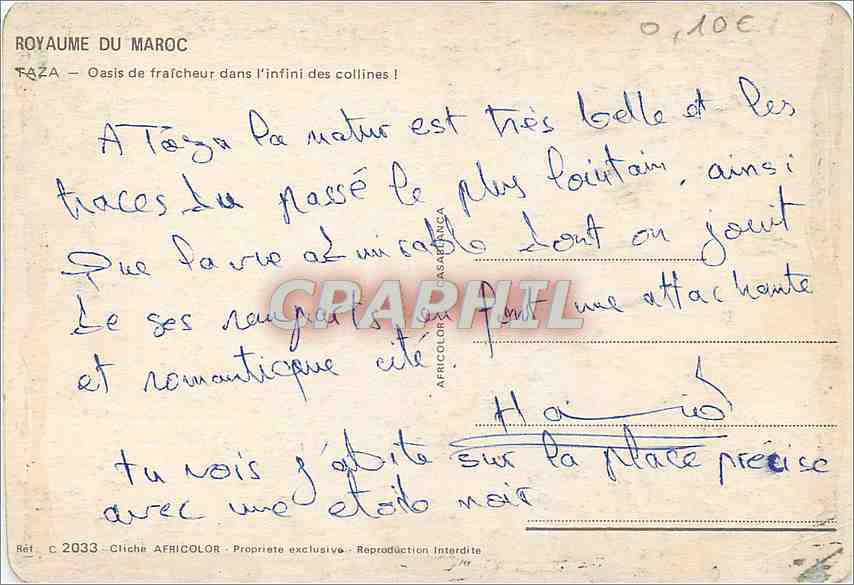 0,10€
ROYAUME DU MAROC
TAZA — Oasis de fraîcheur dans l'infini des collines !
A Taza la natur est très belle et les
traces du passé le plus lointain, ainsi
que la vue admirable dont on jouit
de ses remparts en font une attachante
et romantique cité.
tu vois j'abite sur la place précise
avec une etoile noir
AFRICOLOR CASABLANCA
CPAPHIL
Réf. C 2033 - Cliché AFRICOLOR - Propriete exclusive - Reproduction Interdite